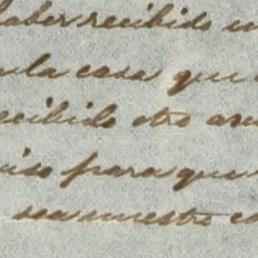 haber recibido un
en la casa que
recibido otro asu
iso para que
sea nuestro e